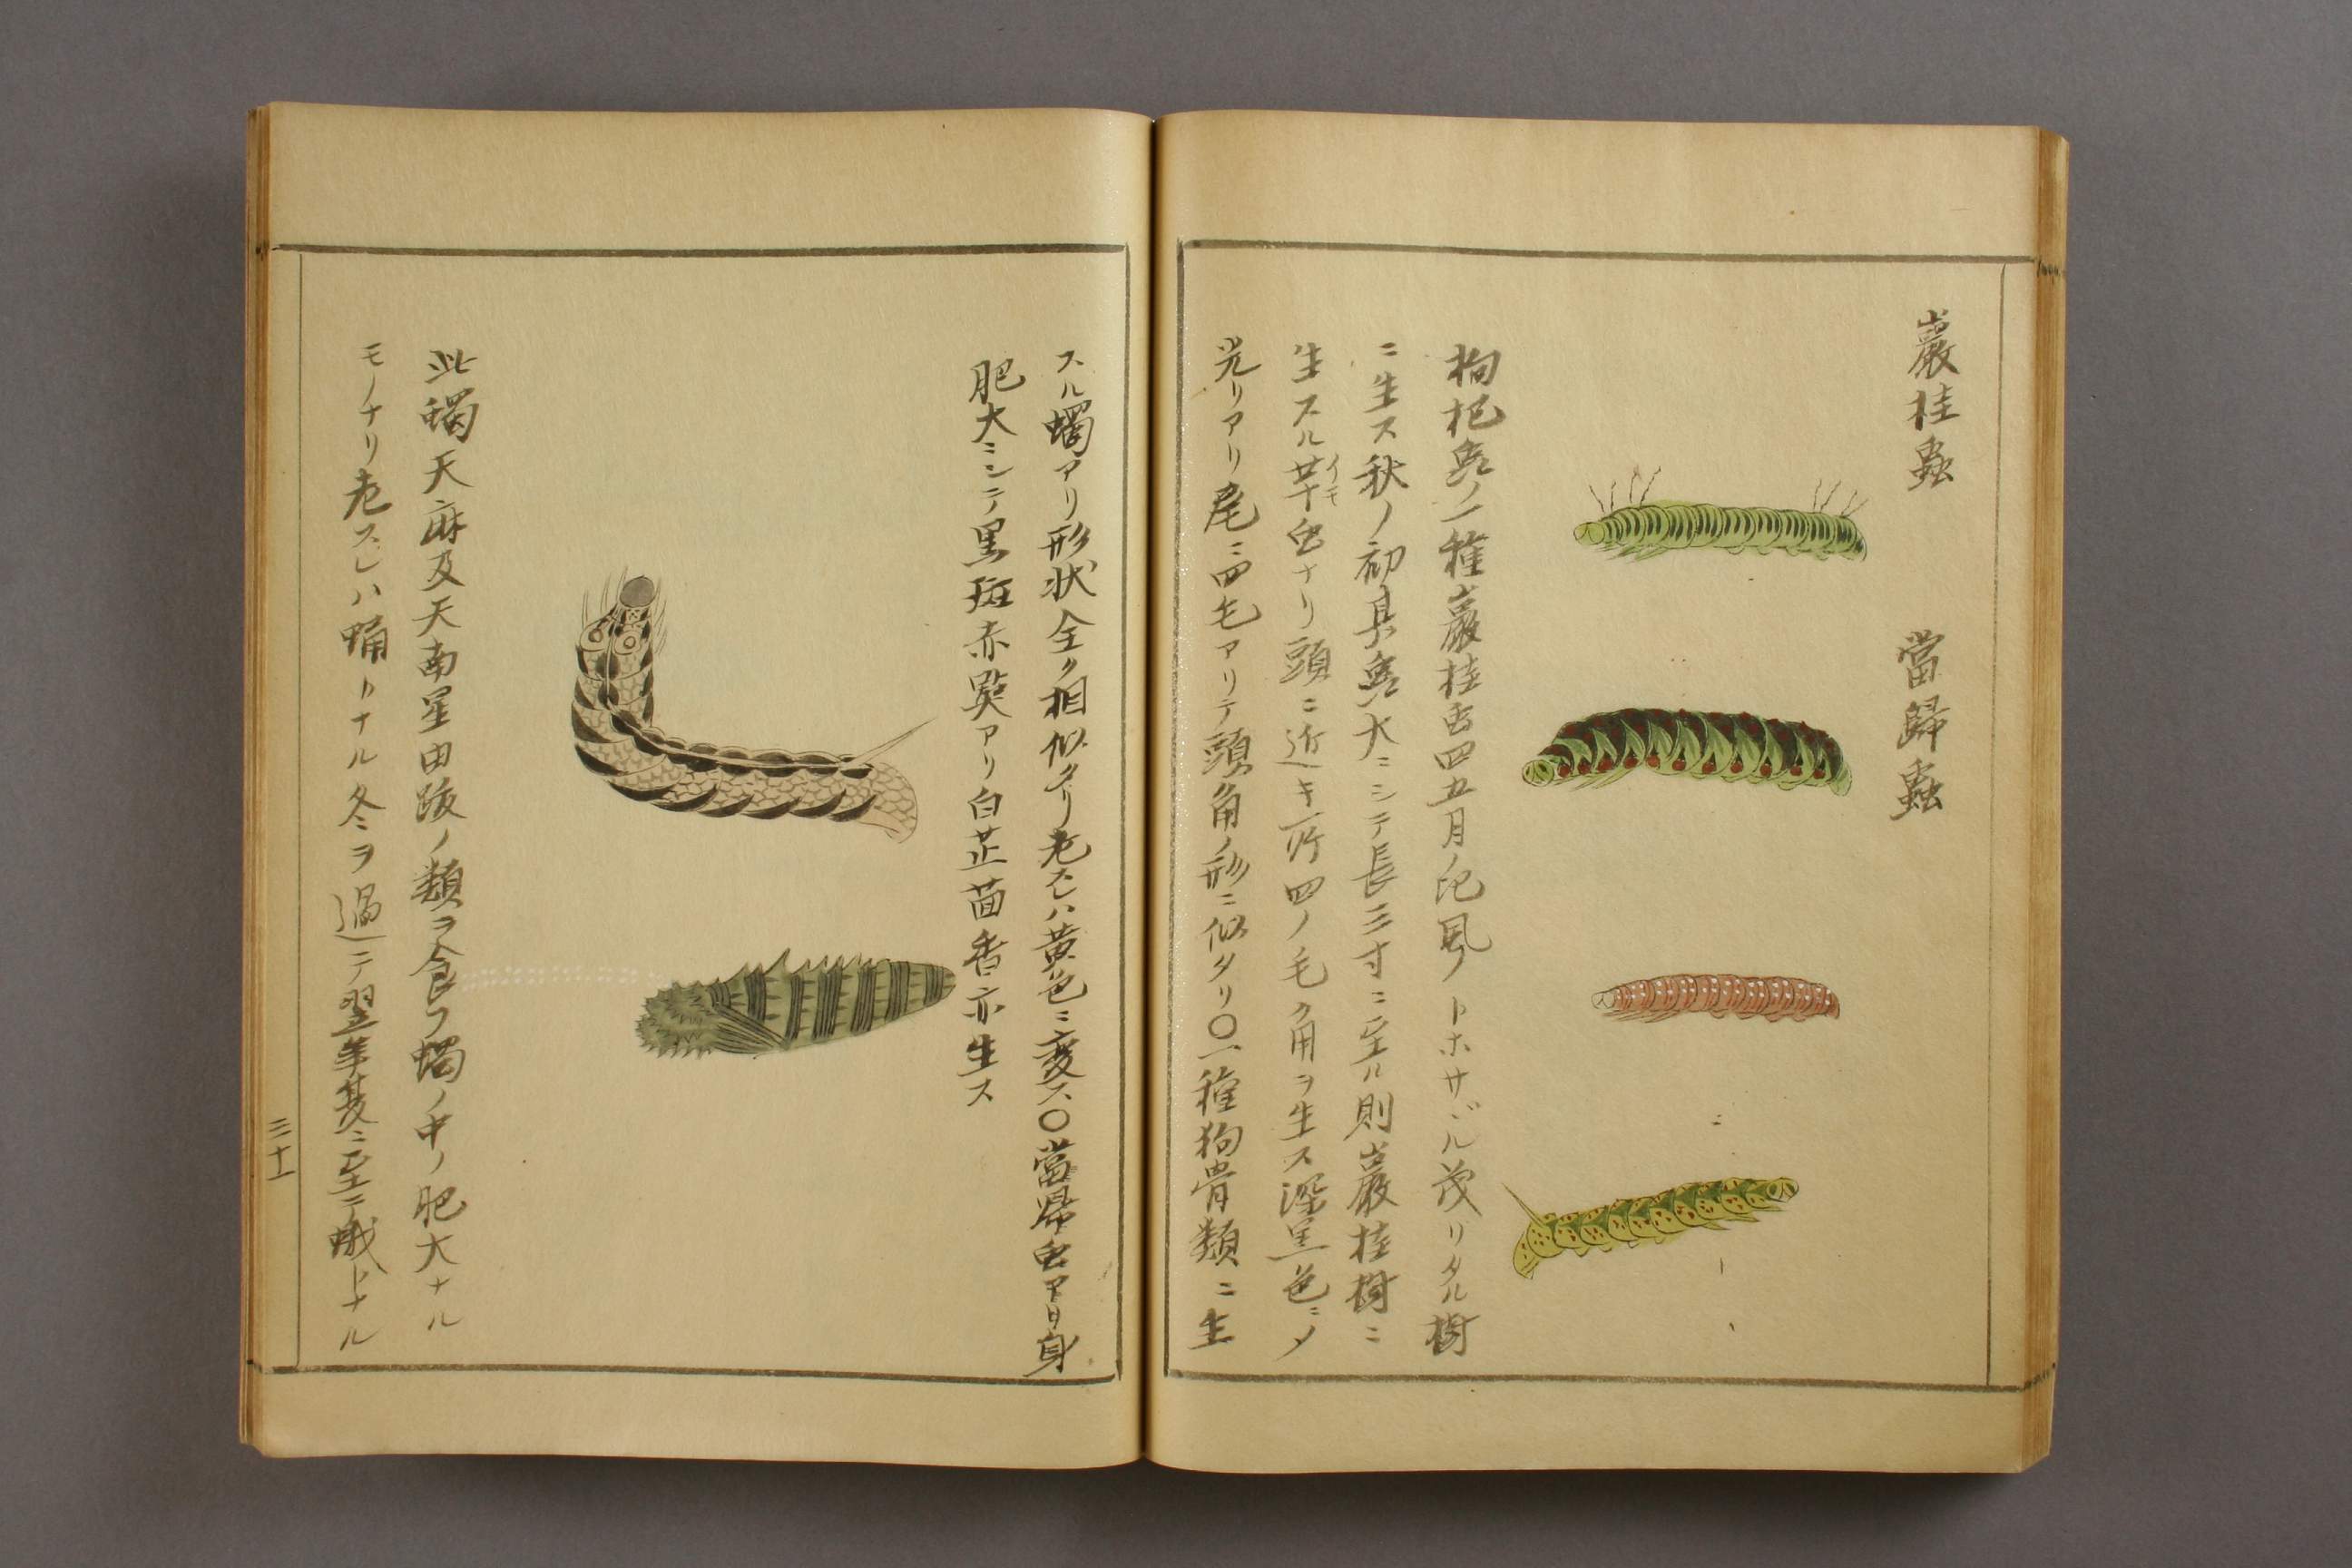 巖桂蟲
當歸蟲
枸杞蟲ノ一種巖桂虫四五月ノ比風ノトホサヾル茂リタル樹
ニ生ス秋ノ初其蟲大ニシテ長三寸ニ至ル則巖桂樹ニ
生スル芋虫ナリ頭ニ近キ所四ノ毛ク角ヲ生ス深黒色ニメ
イモ
光リアリ尾ニ四毛アリテ頭角ノ形ニ似タリ〇一種狗骨類ニ生
スル蠋アリ形状全ク相似タリ老スレハ黄色ニ変ス〇當帰虫アリ身
肥大ニシテ黒斑赤點アリ白芷茴香亦生ス
此蠋天麻及天南星由跋ノ類ヲ食フ蠋ノ中ノ肥大ナル
モノナリ老スレハ蛹トナル冬ヲ過テ翌年夏ニ至テ蛾トナル
三十一